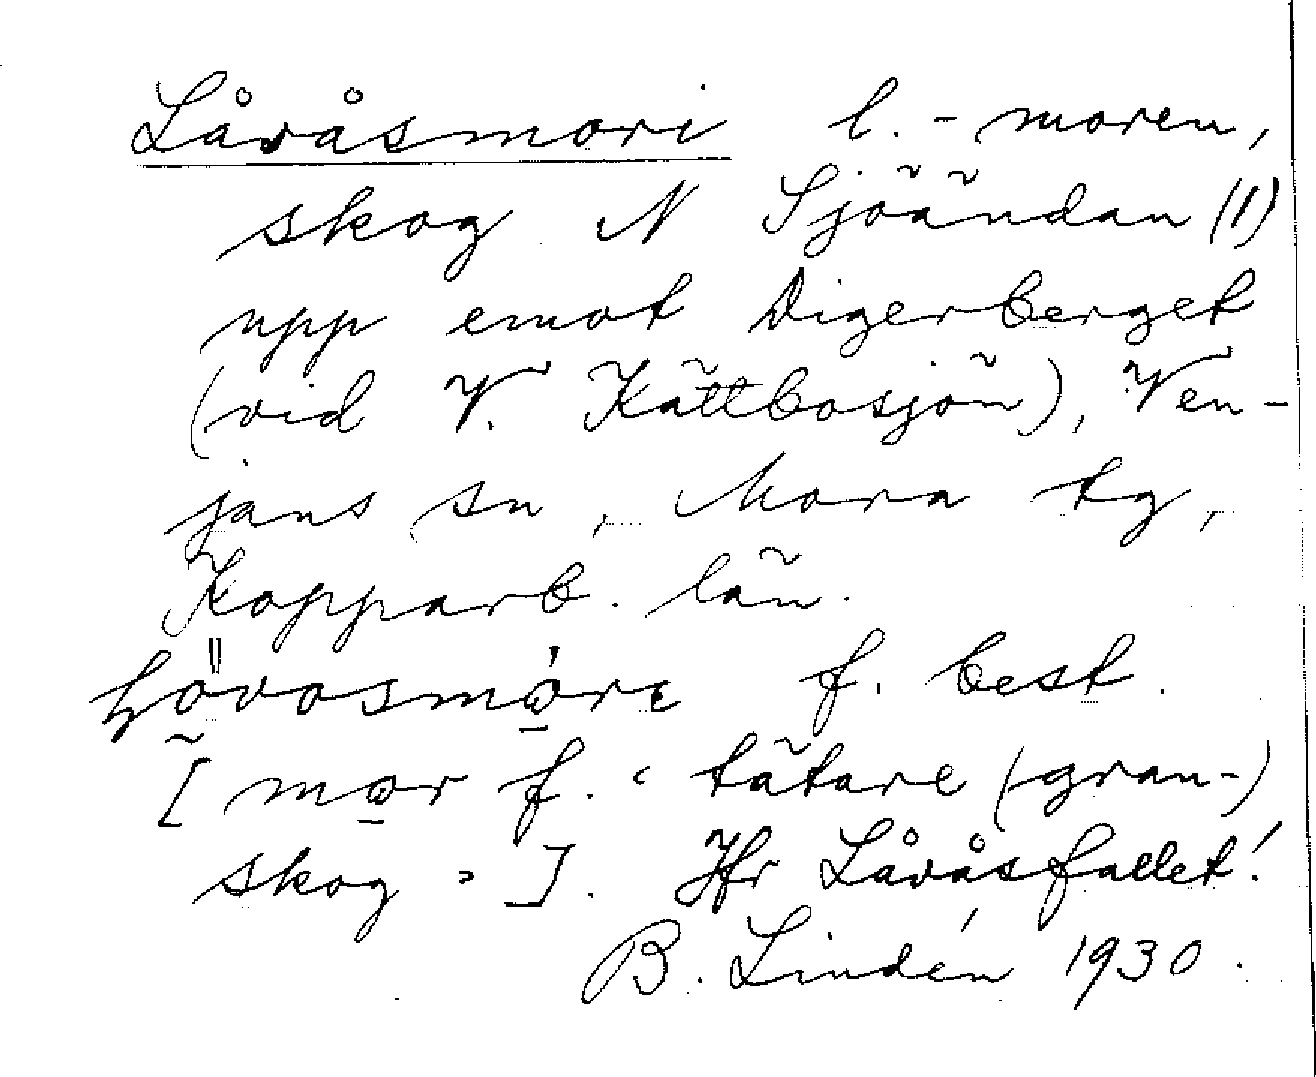 Låråsmori l. -moren,
skog N Sjöändan (1)
upp emot Digerberget
(vid V. Kättbosjön), Ven-
jans sn, Mora tg,
Kopparb. län.
f. best.
[ mo̲r f. ‘ tätare (gran-)
skog ’ ]. Jfr Låråsfallet!
B. Lindén 1930.